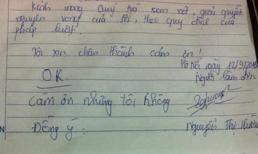 Kính mong Quý tòa xem xét, giải quyết
nguyện vọng của tôi, theo quy định của
pháp luật!
Tôi xin chân thành cám ơn!
Hà Nội, ngày 12/9/20
OK
Người làm đơn
Cảm ơn nhưng tôi không
Đồng ý.
Nguyễn Thị